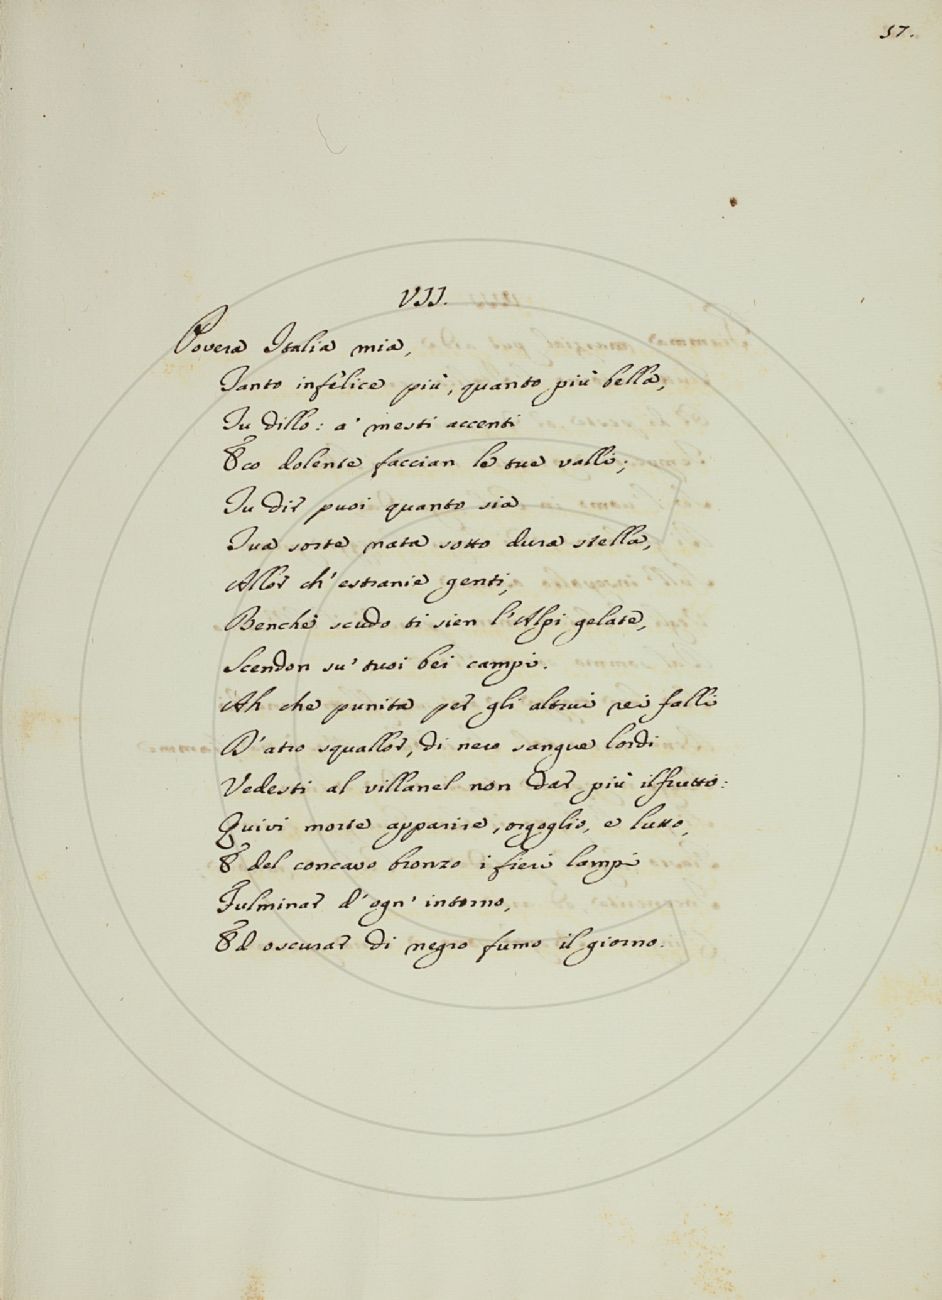 57.
VII.
Povera Italia mia,
Tanto infelice più, quanto più bella,
Tu dillo: a' mesti accenti
Eco dolente faccian le tue valli;
Tu dir puoi quanto sia
Tua sorte nata sotto dura stella,
Allor ch' estranie genti,
Benchè scudo ti sien l'Alpi gelate,
Scendon su' tuoi bei campi.
Ah che punita per gli altrui rei falli
D'atro squallor, di nero sangue lordi
Vedesti al villanel non dar più il frutto:
Quivi morte apparire, orgoglio, e lutto,
E del concavo bronzo i fieri lampi
Fulminar d'ogn' intorno,
Ed oscurar di negro fumo il giorno.